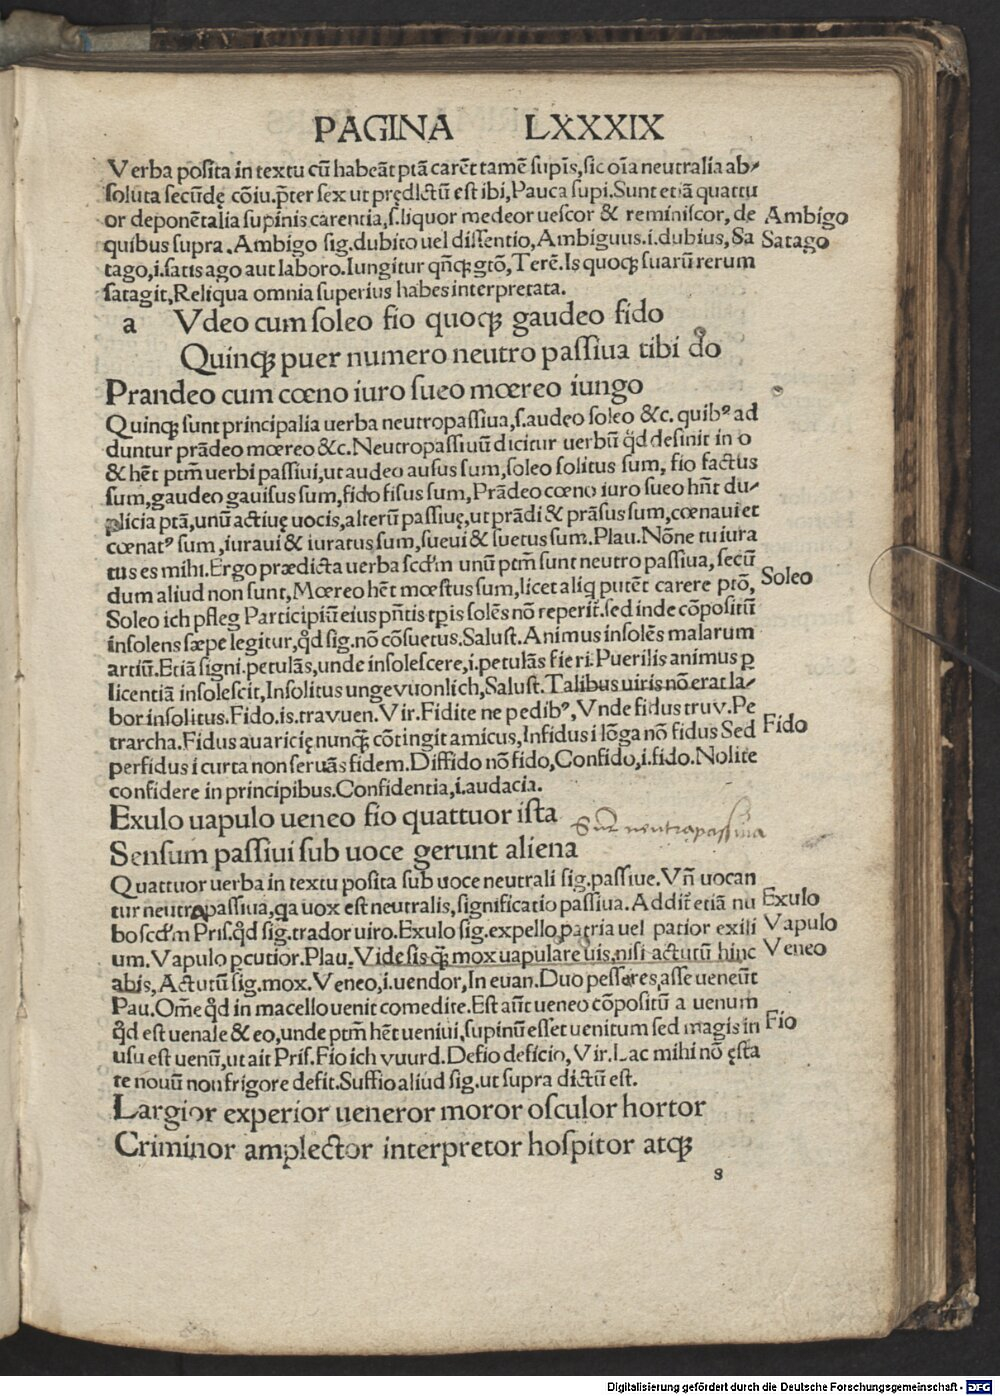 PAGINA LXXXIX
Verba posita in textu cū habeāt ptā carēt tamē supīs, sic oīa neutralia ab⸗
soluta secūdę cōiu. p̄ter sex ut prędictū est ibi, Pauca supi. Sunt etiā quattu
or deponētalia supinis carentia, s. liquor medeor uescor & reminiscor, de
quibus supra. Ambigo sig. dubito uel dissentio, Ambiguus .i. dubius, Sa
tago, i. satis ago aut laboro. Iungitur qn̄qꝫ gtō, Terē. Is quoqꝫ suarū rerum
satagit, Reliqua omnia superius habes interpretata.
Ambigo
Satago
a Vdeo cum soleo fio quoqꝫ gaudeo fido
Quinqꝫ puer numero neutro passiua tibi do
Prandeo cum cœno iuro sueo mœreo iungo
Quinqꝫ sunt principalia uerba neutropassiua, s. audeo soleo &c. quibꝰ ad
duntur prādeo mœreo &c. Neutropassiuū dicitur uerbū qd̄ desinit in o
& hēt ptm̄ uerbi passiui, ut audeo ausus sum, soleo solitus sum, fio factus
sum, gaudeo gauisus sum, fido fisus sum, Prādeo cœno iuro sueo hn̄t du⸗
plicia ptā, unū actiuę uocis, alterū passiuę, ut prādi & prāsus sum, cœnaui et
cœnatꝰ sum, iuraui & iuratus sum, sueui & suetus sum. Plau. Nōne tu iura
tus es mihi. Ergo prædicta uerba scd̄m unū ptm̄ sunt neutro passiua, secū
dum aliud non sunt, Mœreo hēt mœstus sum, licet aliq putēt carere ptō,
Soleo ich pfleg Participiū eius pn̄tis tpis solēs nō reperit̄. sed inde cōpositū
insolens sæpe legitur, qd̄ sig. nō cōsuetus. Salust. Animus insolēs malarum
artiū. Etiā signi. petulās, unde insolescere, i. petulās fieri. Puerilis animus ꝑ
licentiā insolescit, Insolitus ungevuonlich, Salust. Talibus uiris nō erat la⸗
bor insolitus. Fido. is. travuen. Vir. Fidite ne pedibꝰ, Vnde fidus truv. Pe
trarcha. Fidus auaricię nunqꝫ̄ cōtingit amicus, Infidus i lōga nō fidus Sed
perfidus i curta non seruās fidem. Diffido nō fido, Confido, i. fido. Nolite
confidere in principibus. Confidentia, i. audacia.
Soleo
Fido
Exulo uapulo ueneo fio quattuor ista
Sūt neutrapassiua
Sensum passiui sub uoce gerunt aliena
Quattuor uerba in textu posita sub uoce neutrali sig. passiue. Vn̄ uocan
tur neutrapassiua, qa uox est neutralis, significatio passiua. Addit̄ etiā nu
bo scd̄m Pris. qd̄ sig. trador uiro. Exulo sig. expello patria uel patior exili
um. Vapulo pcutior. Plau. Vide sis qꝫ̄ mox uapulare uis, nisi actutū hinc
abis, Actutū sig. mox. Veneo, i. uendor, In euan. Duo passeres, asse ueneūt
Pau. Om̄e qd̄ in macello uenit comedite. Est aūt ueneo cōpositū a uenum
qd̄ est uenale & eo, unde ptm̄ hēt ueniui, supinū esset uenitum sed magis in
usu est uenū, ut ait Pris. Fio ich vuurd. Defio deficio, Vir. Lac mihi nō ęsta
te nouū non frigore defit. Suffio aliud sig. ut supra dictū est.
Exulo
Vapulo
Veneo
Fio
Largior experior ueneror moror osculor hortor
Criminor amplector interpretor hospitor atqꝫ
s
Digitalisierung gefördert durch die Deutsche Forschungsgemeinschaft - DFG